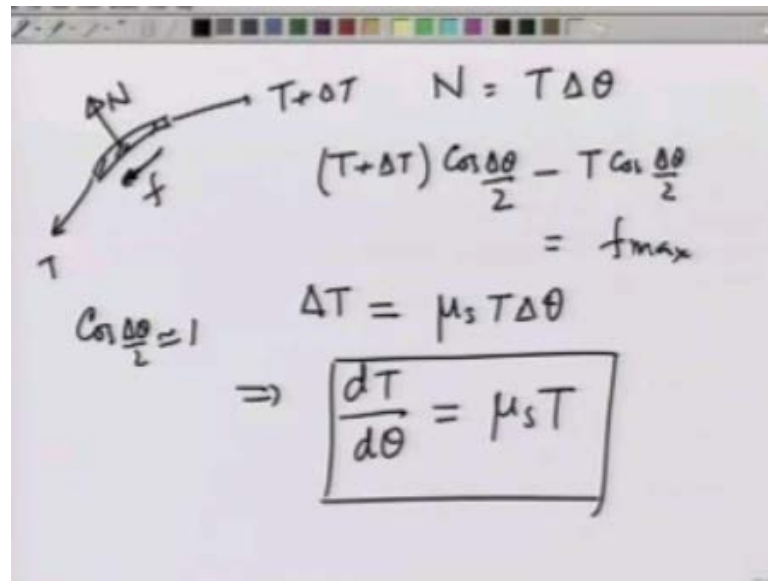 N
T+ΔT
N = TΔθ
f
T
(T+ΔT) Cos Δθ/2 − T Cos Δθ/2
= fmax
Cos Δθ/2 ≃ 1
ΔT = μs TΔθ
⇒ dT/dθ = μsT